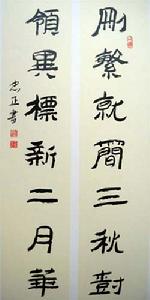 刪繁就簡三秋樹
領異標新二月華
忠正書